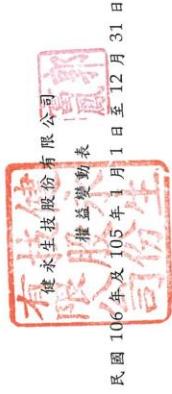 健永生技股份有限公司
權益變動表
民國 106 年及 105 年 1 月 1 日至 12 月 31 日